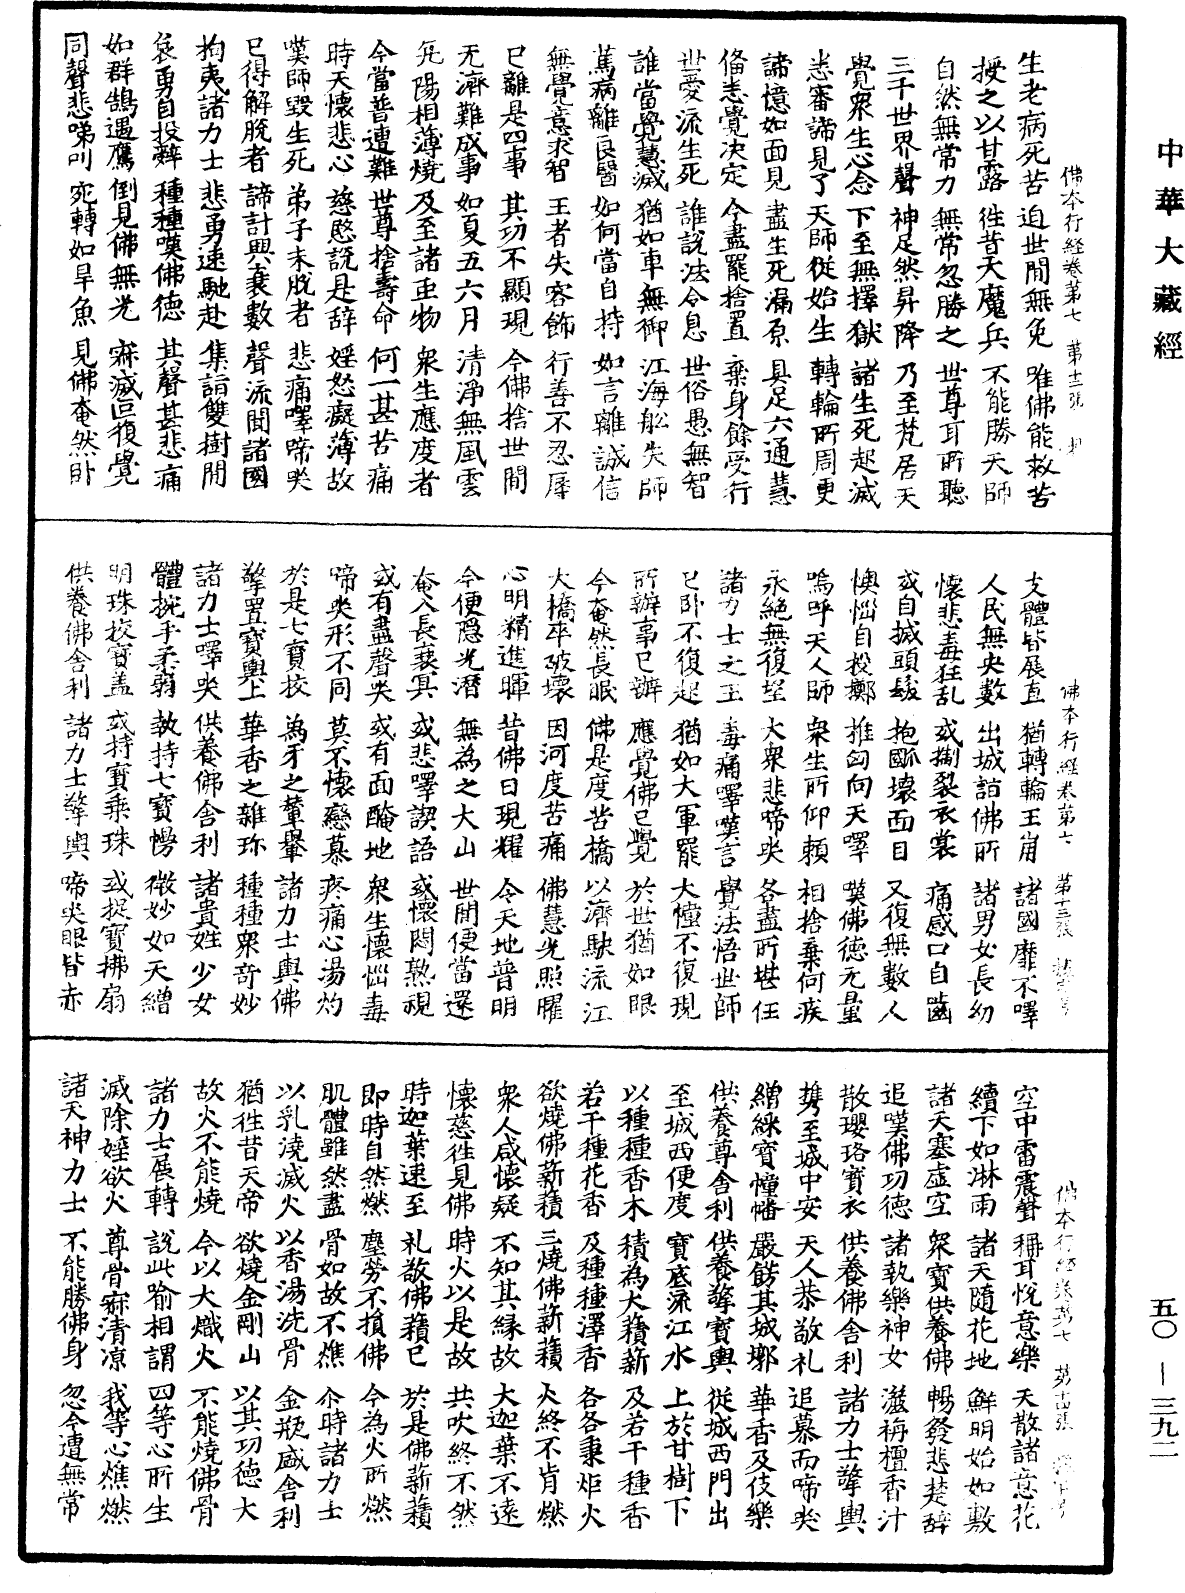 中華大藏經
佛本行經卷第七 第十二張
生老病死苦 迫世間無免 唯佛能救苦
授之以甘露 往昔天魔兵 不能勝天師
自然無常力 無常忽勝之 世尊耳所聽
三千世界聲 神足然昇降 乃至梵居天
覺衆生心念 下至無擇獄 諸生死起滅
悉審諦見了 天師從始生 轉輪所周更
諦憶如面見 盡生死漏原 具足六通慧
備悉覺決定 今盡罷捨置 棄身餘受行
世愛流生死 誰說法令息 世俗愚無智
誰當覺慧滅 猶如車無御 江海舩失師
萬病離良醫 如何當自持 如言離誠信
無覺意求智 王者失容飾 行善不忍辱
已離是四事 其功不顯現 今佛捨世間
无濟難成事 如夏五六月 清淨無風雲
旡陽相薄燒 及至諸垂物 衆生應度者
今當普遭難 世尊捨壽命 何一甚苦痛
時天懷悲心 慈愍說是辞 婬怒癡薄故
嘆師毀生死 弟子未脫者 悲痛嘷啼哭
已得解脫者 諦計興衰數 聲流聞諸國
拘夷諸力士 悲勇速馳赴 集詣雙樹間
哀勇自投辭 種種嘆佛德 其聲甚悲痛
如群鵠遇鷹 倒見佛無光 寐滅叵復覺
同聲悲啼叫 宛轉如旱魚 見佛奄然臥
佛本行經卷第七 第十三張
支體皆展直 猶轉輪王崩 諸國靡不嘷
人民無央數 出城詣佛所 諸男女長幼
懷悲毒狂亂 或掣裂衣裳 痛感口自齧
或自搣頭髮 抱䶧壞面目 又復無數人
懊惱自投擲 推匈向天嘷 嘆佛德无量
嗚呼天人師 衆生所仰賴 相捨棄何疾
永絕無復望 大衆悲啼哭 各盡所堪任
諸力士之王 毒痛嘷嘆言 覺法悟世師
已臥不復起 猶如大軍罷 大幢不復現
所辦事已辦 應覺佛已覺 於世猶如眼
今奄然長眠 佛是度苦橋 以濟駛流江
大橋卒破壞 因河度苦痛 佛慧光照曜
心明精進暉 昔佛日現耀 令天地普明
今便隱光潛 無為之大山 世間便當還
奄入長衰冥 或悲嘷誤語 或懷悶熟視
或有盡聲哭 或有面醃地 衆生懷惱毒
啼哭形不同 莫不懷戀慕 疼痛心湯灼
於是七寶挍 為牙之輦轝 諸力士輿佛
擎置寶輿上 華香之雜珎 種種衆奇妙
諸力士嘷哭 供養佛舍利 諸貴姓少女
體挽手柔弱 執持七寶幔 微妙如天繒
明珠挍寶盖 或持寶乘珠 或捉寶拂扇
供養佛舍利 諸力士擎輿 啼哭眼皆赤
佛本行經卷第七 第十四張
空中雷震聲 稱耳悅意樂 天散諸意花
續下如淋雨 諸天隨花地 鮮明始如敷
諸天塞虛空 衆寶供養佛 暢發悲楚辞
追嘆佛功德 諸執樂神女 滋栴檀香汁
散瓔珞寶衣 供養佛舍利 諸力士擎輿
攜至城中安 天人恭敬礼 追慕而啼哭
繒綵寶幢幡 嚴飾其城墎 華香及伎樂
供養尊舍利 供養擎寶輿 從城西門出
至城西便度 寶底流江水 上於甘樹下
以種種香木 積為大𧂐薪 及若干種香
若干種花香 及種種澤香 各各秉炬火
欲燒佛薪𧂐 三燒佛薪𧂐 火終不肯燃
衆人咸懷疑 不知其緣故 大迦葉不遠
懷慈往見佛 時火以是故 共吹終不然
時迦葉速至 礼敬佛𧂐已 於是佛薪𧂐
即時自然燃 塵勞不損佛 今為火所燃
肌體雖然盡 骨如故不燋 尒時諸力士
以乳澆滅火 以香湯洗骨 金瓶盛舍利
猶往昔天帝 欲燒金剛山 以其功德大
故火不能燒 今以大熾火 不能燒佛骨
諸力士展轉 說此喻相謂 四等心所生
滅除婬欲火 尊骨寐清涼 我等心燋燃
諸天神力士 不能勝佛身 忽今遭無常
五〇—三九二